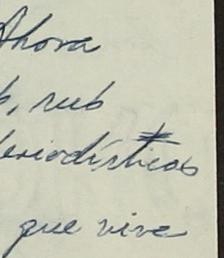 Ahora
, sub
periodísticas
que vive